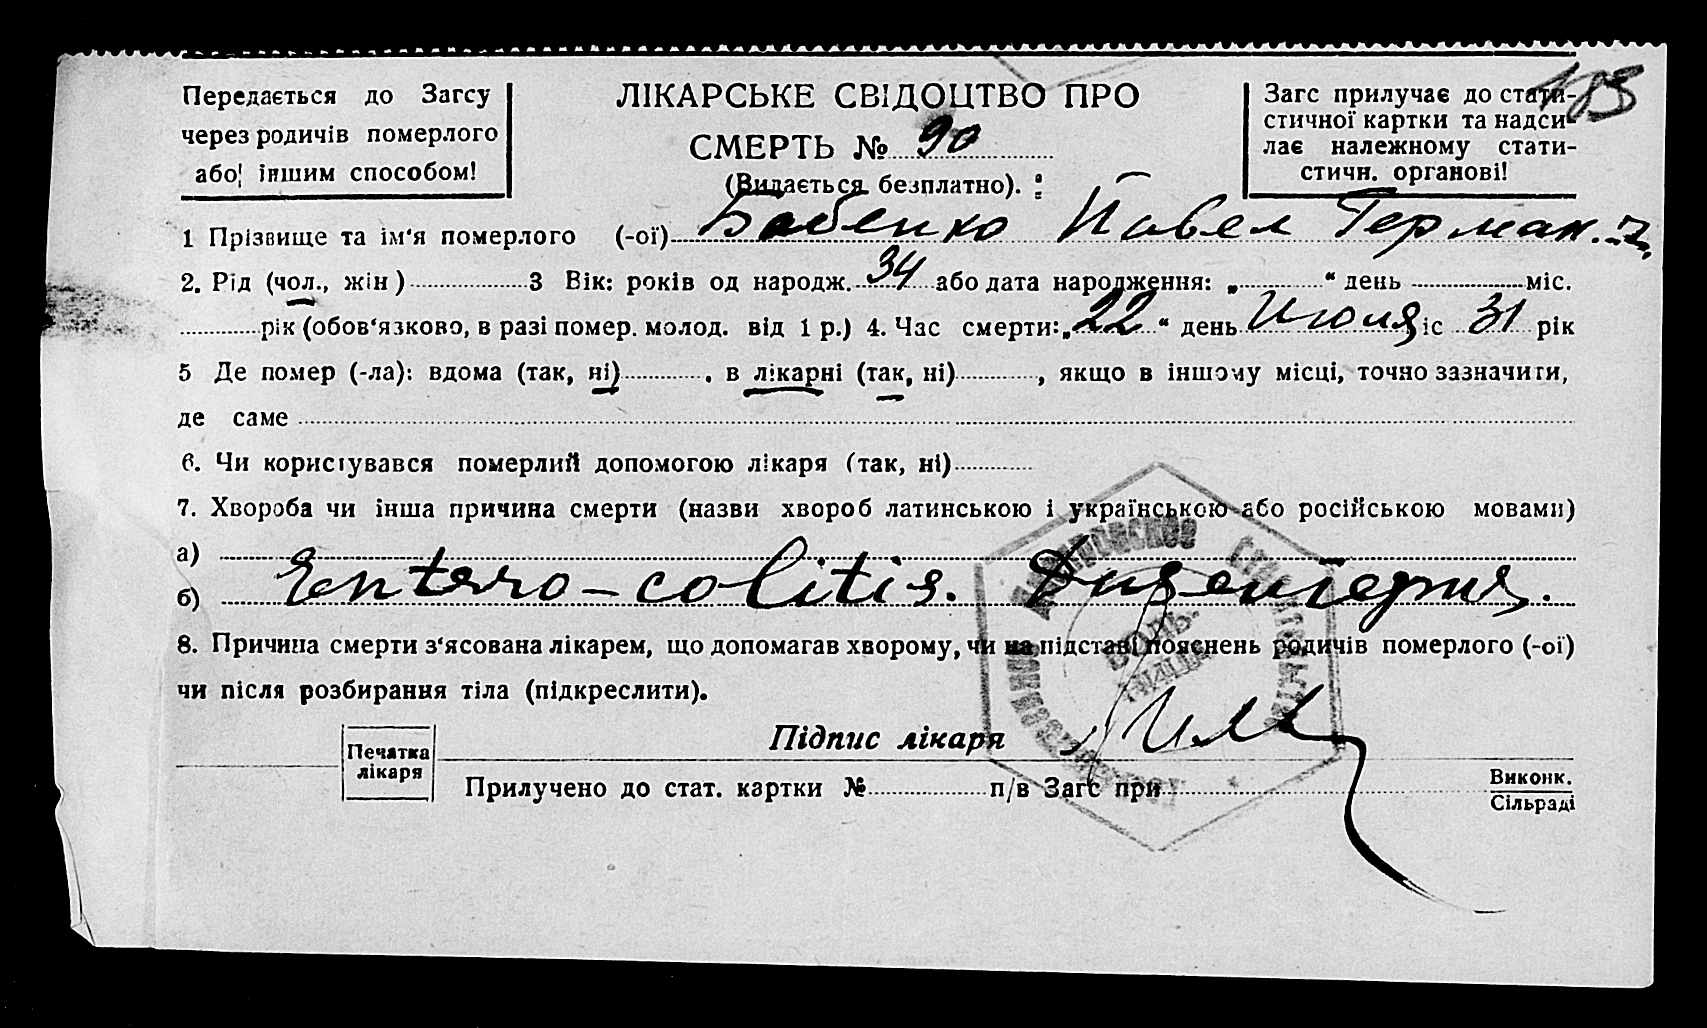 183
Передається до Загсу
через родичів померлого
або іншим способом!
ЛІКАРСЬКЕ СВІДОЦТВО ПРО
СМЕРТЬ № 90
(Видається безплатно).
Загс прилучає до стати-
стичної картки та надси-
лає належному стати-
стичн. органові!
1 Прізвище та ім'я померлого (-ої) Бабенко Павел Герман.
2. Рід (чол., жін) 3 Вік: років од народж. 34 або дата народження: „ “ день міс.
рік (обов'язково, в разі помер. молод. від 1 р.) 4. Час смерти: „22“ день Июля іс 31 рік
5 Де помер (-ла): вдома (так, ні) , в лікарні (так, ні) , якщо в іншому місці, точно зазначити,
де саме
6. Чи користувався померлий допомогою лікаря (так, ні)
7. Хвороба чи інша причина смерти (назви хвороб латинською і українською або російською мовами)
а)
б) Entero-colitis. Дизентерия.
8. Причина смерти з'ясована лікарем, що допомагав хворому, чи на підставі пояснень родичів померлого (-ої)
чи після розбирання тіла (підкреслити).
Підпис лікаря
Печатка
лікаря
Прилучено до стат. картки № п/в Загс при
Виконк.
Сільраді